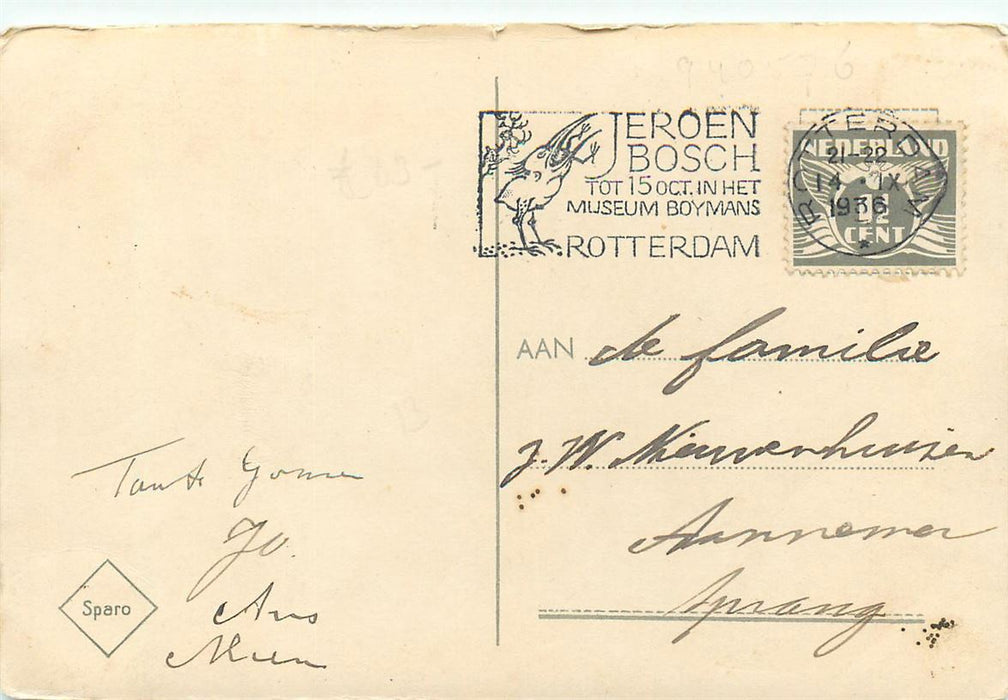 940576
JEROEN
BOSCH
TOT 15 OCT. IN HET
MUSEUM BOYMANS
ROTTERDAM
ROTTERDAM
21-22
14 · IX
1936
*
NEDERLAND
1½
CENT
AAN de familie
J. W. Nieuwenhuizen
Aannemer
Sprang
Tante
Jo.
Ans
Mien
Sparo